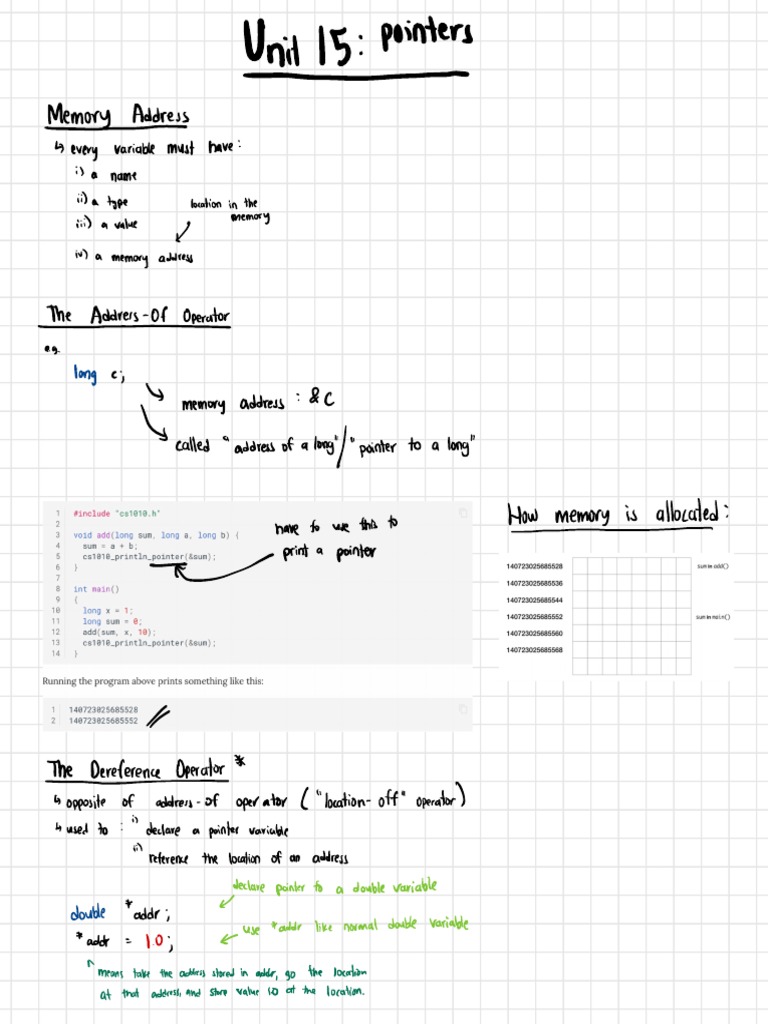 Unit 15: pointers
Memory Address
↳ every variable must have:
i) a name
ii) a type
iii) a value
location in the
memory
iv) a memory address
The Address-Of Operator
e.g.
long c;
memory address : &C
called "address of a long"/"pointer to a long"
1 #include "cs1010.h"
2
3 void add(long sum, long a, long b) {
4 sum = a + b;
5 cs1010_println_pointer(&sum);
6 }
7
8 int main()
9 {
10 long x = 1;
11 long sum = 0;
12 add(sum, x, 10);
13 cs1010_println_pointer(&sum);
14 }
have to use this to
print a pointer
Running the program above prints something like this:
1 140723025685528
2 140723025685552
How memory is allocated:
140723025685528 sum in add()
140723025685536
140723025685544
140723025685552 sum in main()
140723025685560
140723025685568
The Dereference Operator *
↳ opposite of address-of operator ("location-off" operator)
↳ used to : i) declare a pointer variable
ii) reference the location of an address
declare pointer to a double variable
double *addr;
use *addr like normal double variable
*addr = 1.0;
means take the address stored in addr, go the location
at that address, and store value 1.0 at the location.